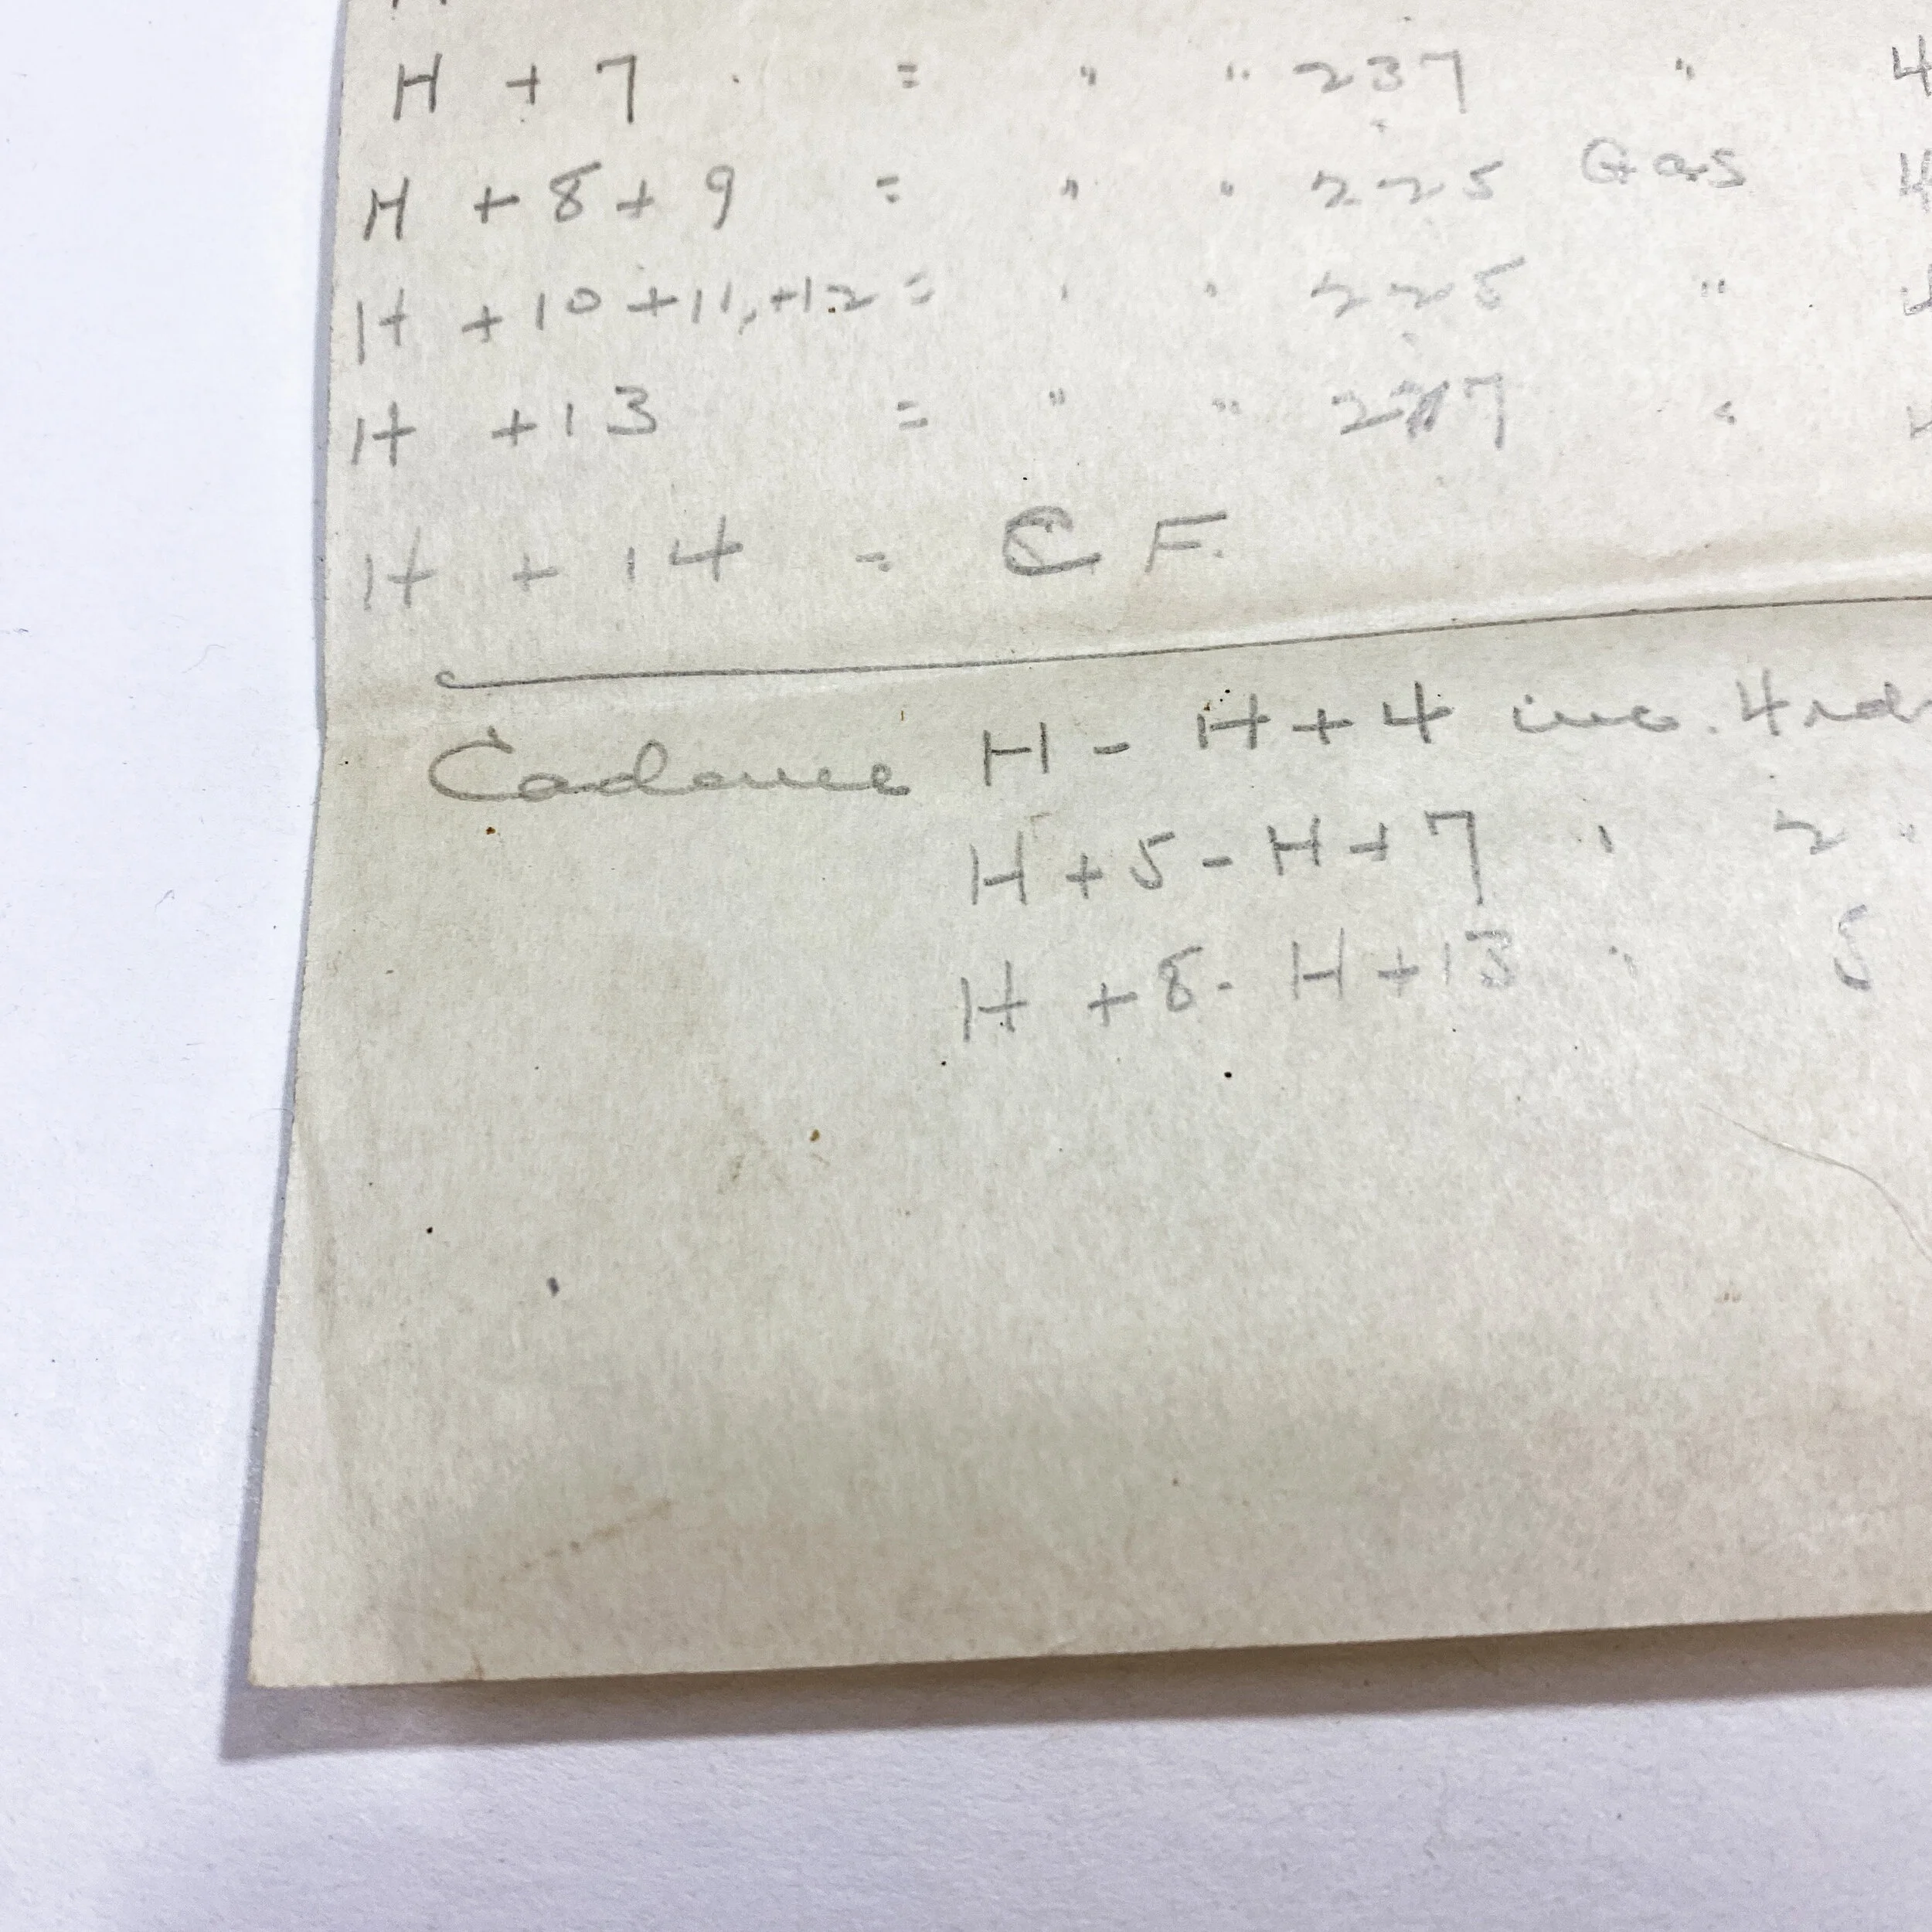 H + 7 = " " 237 " 4
H + 8 + 9 = " " 225 Gas 4
H + 10 + 11, + 12 = " " 225 "
H + 13 = " " "
H + 14 = C F.
Cadence H - H + 4 inc. 4 rds
H + 5 - H + 7 " 2 "
H + 8 - H + 13 " 5